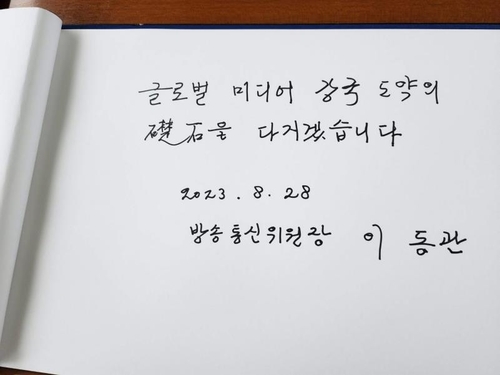 글로벌 미디어 강국 도약의
礎石을 다지겠습니다
2023. 8. 28
방송통신위원장 이동관